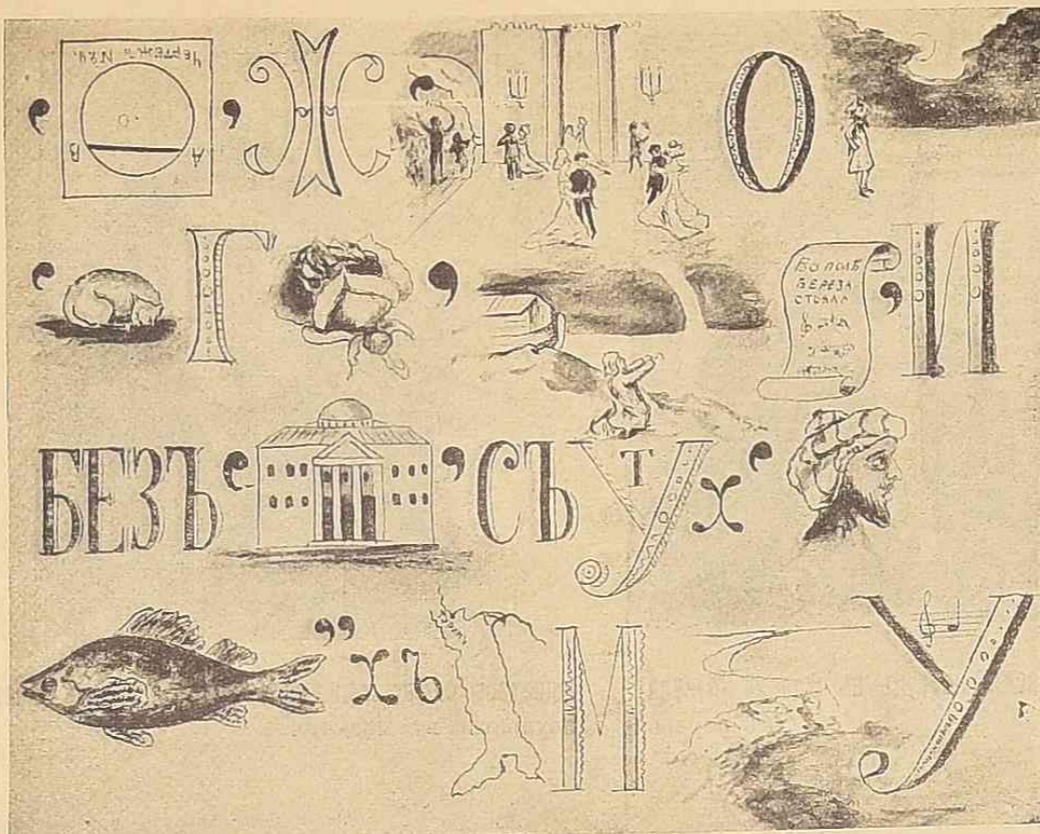 ‚ ЧЕРТЕЖЪ №24. А В , Ж , О
‚ Г , Во полѣ
БЕРЕЗА
СТОЯЛА
, И
БЕЗЪ ‚ , СЪ У Т х ‚
,, хъ М У